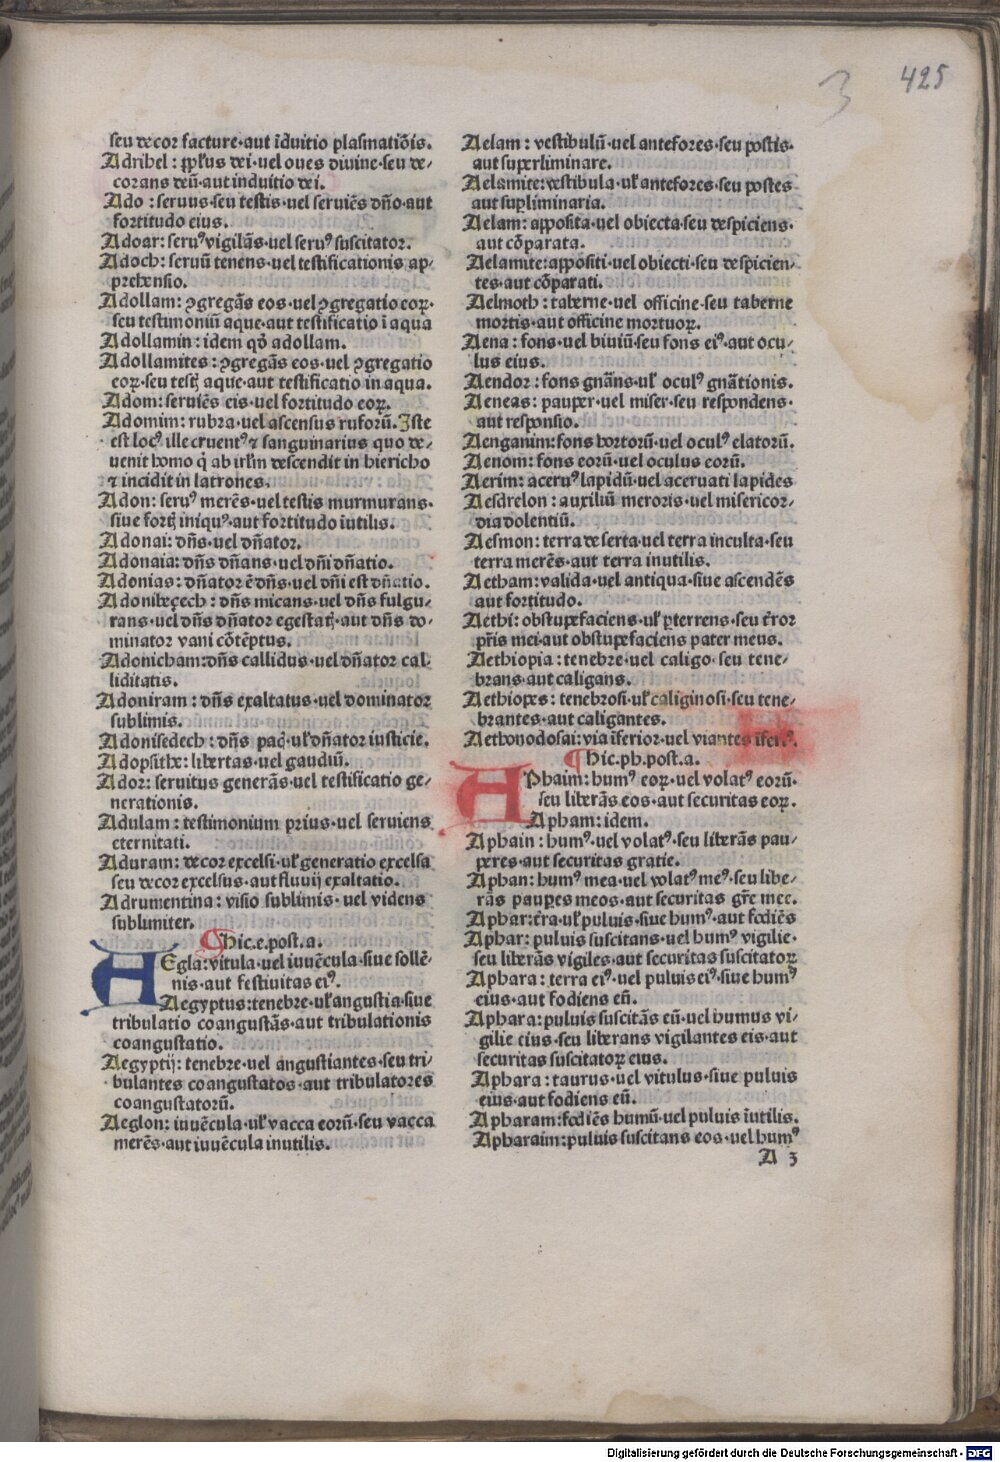 3 425
seu decor facture·aut īduitio plasmatiōis.
Adribel : ꝓpīꝗus dei·uel oues diuine·seu de/
corans deū·aut induitio dei.
Ado : seruus·seu testis·uel seruiēs dn̄o·aut
fortitudo eius.
Adoar: seruꝰ vigilās·uel seruꝰ suscitator.
Adoch: seruū tenens·uel testificationis ap/
prehensio.
Adollam: ꝯgregās eos·uel ꝯgregatio eoꝝ·
seu testimoniū aque·aut testificatio ī aqua
Adollamin: idem qd̄ adollam.
Adollamites: ꝯgregās eos·uel ꝯgregatio
eoꝝ·seu testꝭ aque·aut testificatio in aqua.
Adom: seruiēs eis·uel fortitudo eoꝝ.
Adomim: rubra·uel ascensus ruforū. Iste
est locꝰ ille cruentꝰ ⁊ sanguinarius quo de/
uenit homo q̇ ab irl̄m descendit in hiericho
⁊ incidit in latrones.
Adon: seruꝰ merēs·uel testis murmurans·
siue fortꝭ iniquꝰ·aut fortitudo īutilis.
Adonai: dn̄s·uel dn̄ator.
Adonaia: dn̄s dn̄ans·uel dn̄i dn̄atio.
Adonias: dn̄ator ē dn̄s·uel dn̄i est dn̄atio.
Adonibeçech : dn̄s micans·uel dn̄s fulgu/
rans·uel dn̄s dn̄ator egestatꝭ·aut dn̄s do/
minator vani cōtēptus.
Adonicham: dn̄s callidus·uel dn̄ator cal/
liditatis.
Adoniram : dn̄s exaltatus·uel dominator
sublimis.
Adonisedech : dn̄s pad·ul̓ dn̄ator iusticie.
Adopsithe: libertas·uel gaudiū.
Ador: seruitus generās·uel testificatio ge/
nerationis.
Adulam : testimonium prius·uel seruiens
eternitati.
Aduram: decor excelsi·ul̓ generatio excelsa
seu decor excelsus·aut fluuij exaltatio.
Adrumentina : visio sublimis·uel videns
sublimiter.
Hic.e.post.a.
AEgla: vitula·uel iuuēcula·siue sollē/
nis·aut festiuitas eiꝰ.
Aegyptus: tenebre·ul̓ angustia·siue
tribulatio coangustās·aut tribulationis
coangustatio.
Aegyptij: tenebre·uel angustiantes·seu tri/
bulantes coangustatos·aut tribulatores
coangustatorū.
Aeglon: iuuēcula·ul̓ vacca eorū·seu vacca
merēs·aut iuuēcula inutilis.
Aelam : vestibulū·uel antefores·seu postis·
aut superliminare.
Aelamite: vestibula·ul̓ antefores·seu postes
aut suꝑliminaria.
Aelam: apposita·uel obiecta·seu despiciens·
aut cōparata.
Aelamite: appositi·uel obiecti·seu despicien/
tes·aut cōparati.
Aelmoth : taberne·uel officine·seu taberne
mortis·aut officine mortuoꝝ.
Aena : fons·uel biuiū·seu fons eiꝰ·aut ocu/
lus eius.
Aendor : fons gn̄ans·ul̓ oculꝰ gn̄ationis.
Aeneas: pauper·uel miser·seu respondens·
aut responsio.
Aenganim: fons hortorū·uel oculꝰ elatorū.
Aenom: fons eorū·uel oculus eorū.
Aerim: aceruꝰ lapidū·uel aceruati lapides
Aesdrelon : auxiliū meroris·uel misericor/
dia dolentiū.
Aesmon: terra deserta·uel terra inculta·seu
terra merēs·aut terra inutilis.
Aetham: valida·uel antiqua·siue ascendēs
aut fortitudo.
Aethi: obstupefaciens·ul̓ ꝑterrens·seu ēror
pr̄is mei·aut obstupefaciens pater meus.
Aethiopia : tenebre·uel caligo·seu tene/
brans·aut caligans.
Aethiopes : tenebrosi·ul̓ caliginosi·seu tene/
brantes·aut caligantes.
Aethonodosai: via īferior·uel viantes
Hic.ph.post.a.
APhaim: humꝰ eoꝝ·uel volatꝰ eorū·
seu liberās eos·aut securitas eoꝝ.
Apham: idem.
Aphain : humꝰ·uel volatꝰ·seu liberās pau/
peres·aut securitas gratie.
Aphan: humꝰ mea·uel volatꝰ meꝰ·seu libe/
rās pauꝑes meos·aut securitas gr̄e mee.
Aphar: ēra·ul̓ puluis·siue humꝰ·aut fodiēs
Aphar: puluis suscitans·uel humꝰ vigilie·
seu liberās vigiles·aut securitas suscitatoꝝ
Aphara : terra eiꝰ·uel puluis eiꝰ·siue humꝰ
eius·aut fodiens eū.
Aphara: puluis suscitās eū·uel humus vi/
gilie eius·seu liberans vigilantes eis·aut
securitas suscitatoꝝ eius.
Aphara : taurus·uel vitulus·siue puluis
eius·aut fodiens eū.
Apharam: fodiēs humū·uel puluis īutilis.
Apharaim: puluis suscitans eos·uel humꝰ
A 3
Digitalisierung gefördert durch die Deutsche Forschungsgemeinschaft - DFG